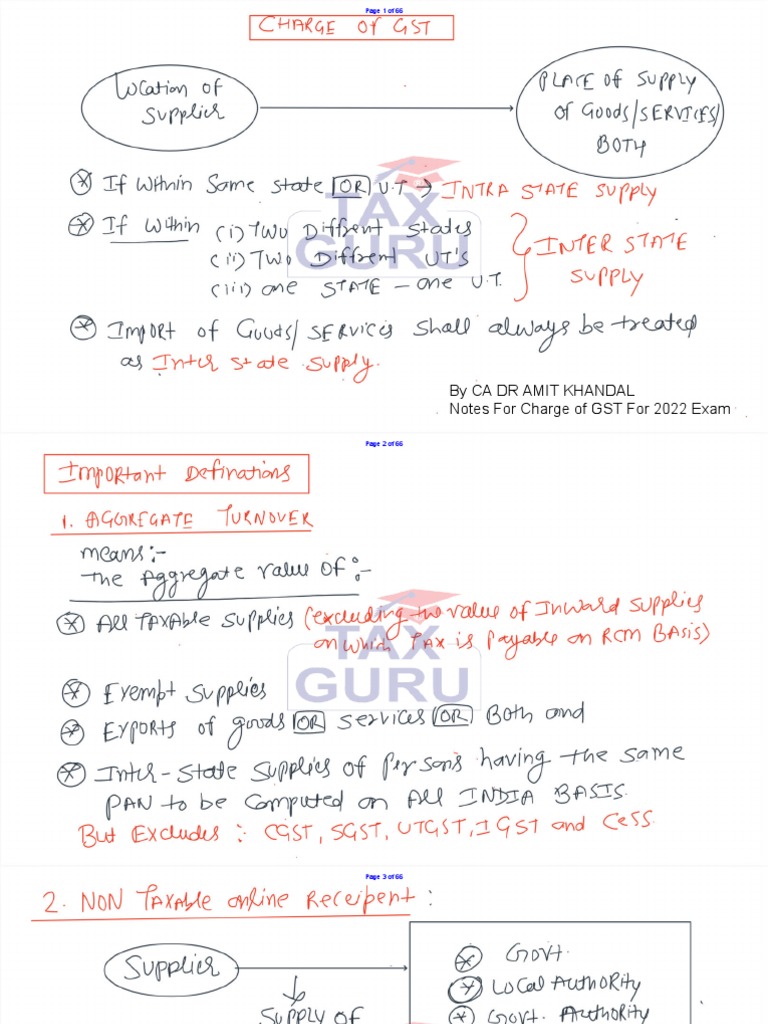 Page 1 of 66
CHARGE OF GST
Location of
Supplier
PLACE OF SUPPLY
of Goods/SERVICES/
BOTH
If within Same state OR U.T → INTRA STATE SUPPLY
If within (i) Two Diffrent states
(ii) Two Diffrent UT's
(iii) one STATE – one U.T.
INTER STATE
SUPPLY
Import of Goods/SERVICES shall always be treated
as Inter state supply.
TAX
GURU
By CA DR AMIT KHANDAL
Notes For Charge of GST For 2022 Exam
Page 2 of 66
Important Definations
1. AGGREGATE TURNOVER
means:-
the Aggregate value of:-
All TAXABLE Supplies (excluding the value of Inward Supplies
on which TAX is payable on RCM BASIS)
TAX
GURU
Exempt Supplies
Exports of goods OR services OR Both and
Inter-State supplies of Persons having the same
PAN to be computed on All INDIA BASIS.
But Excludes: CGST, SGST, UTGST, IGST and Cess.
Page 3 of 66
2. NON Taxable online Receipent:
Supplier
Supply of
Govt.
Local Authority
Govt. Authority